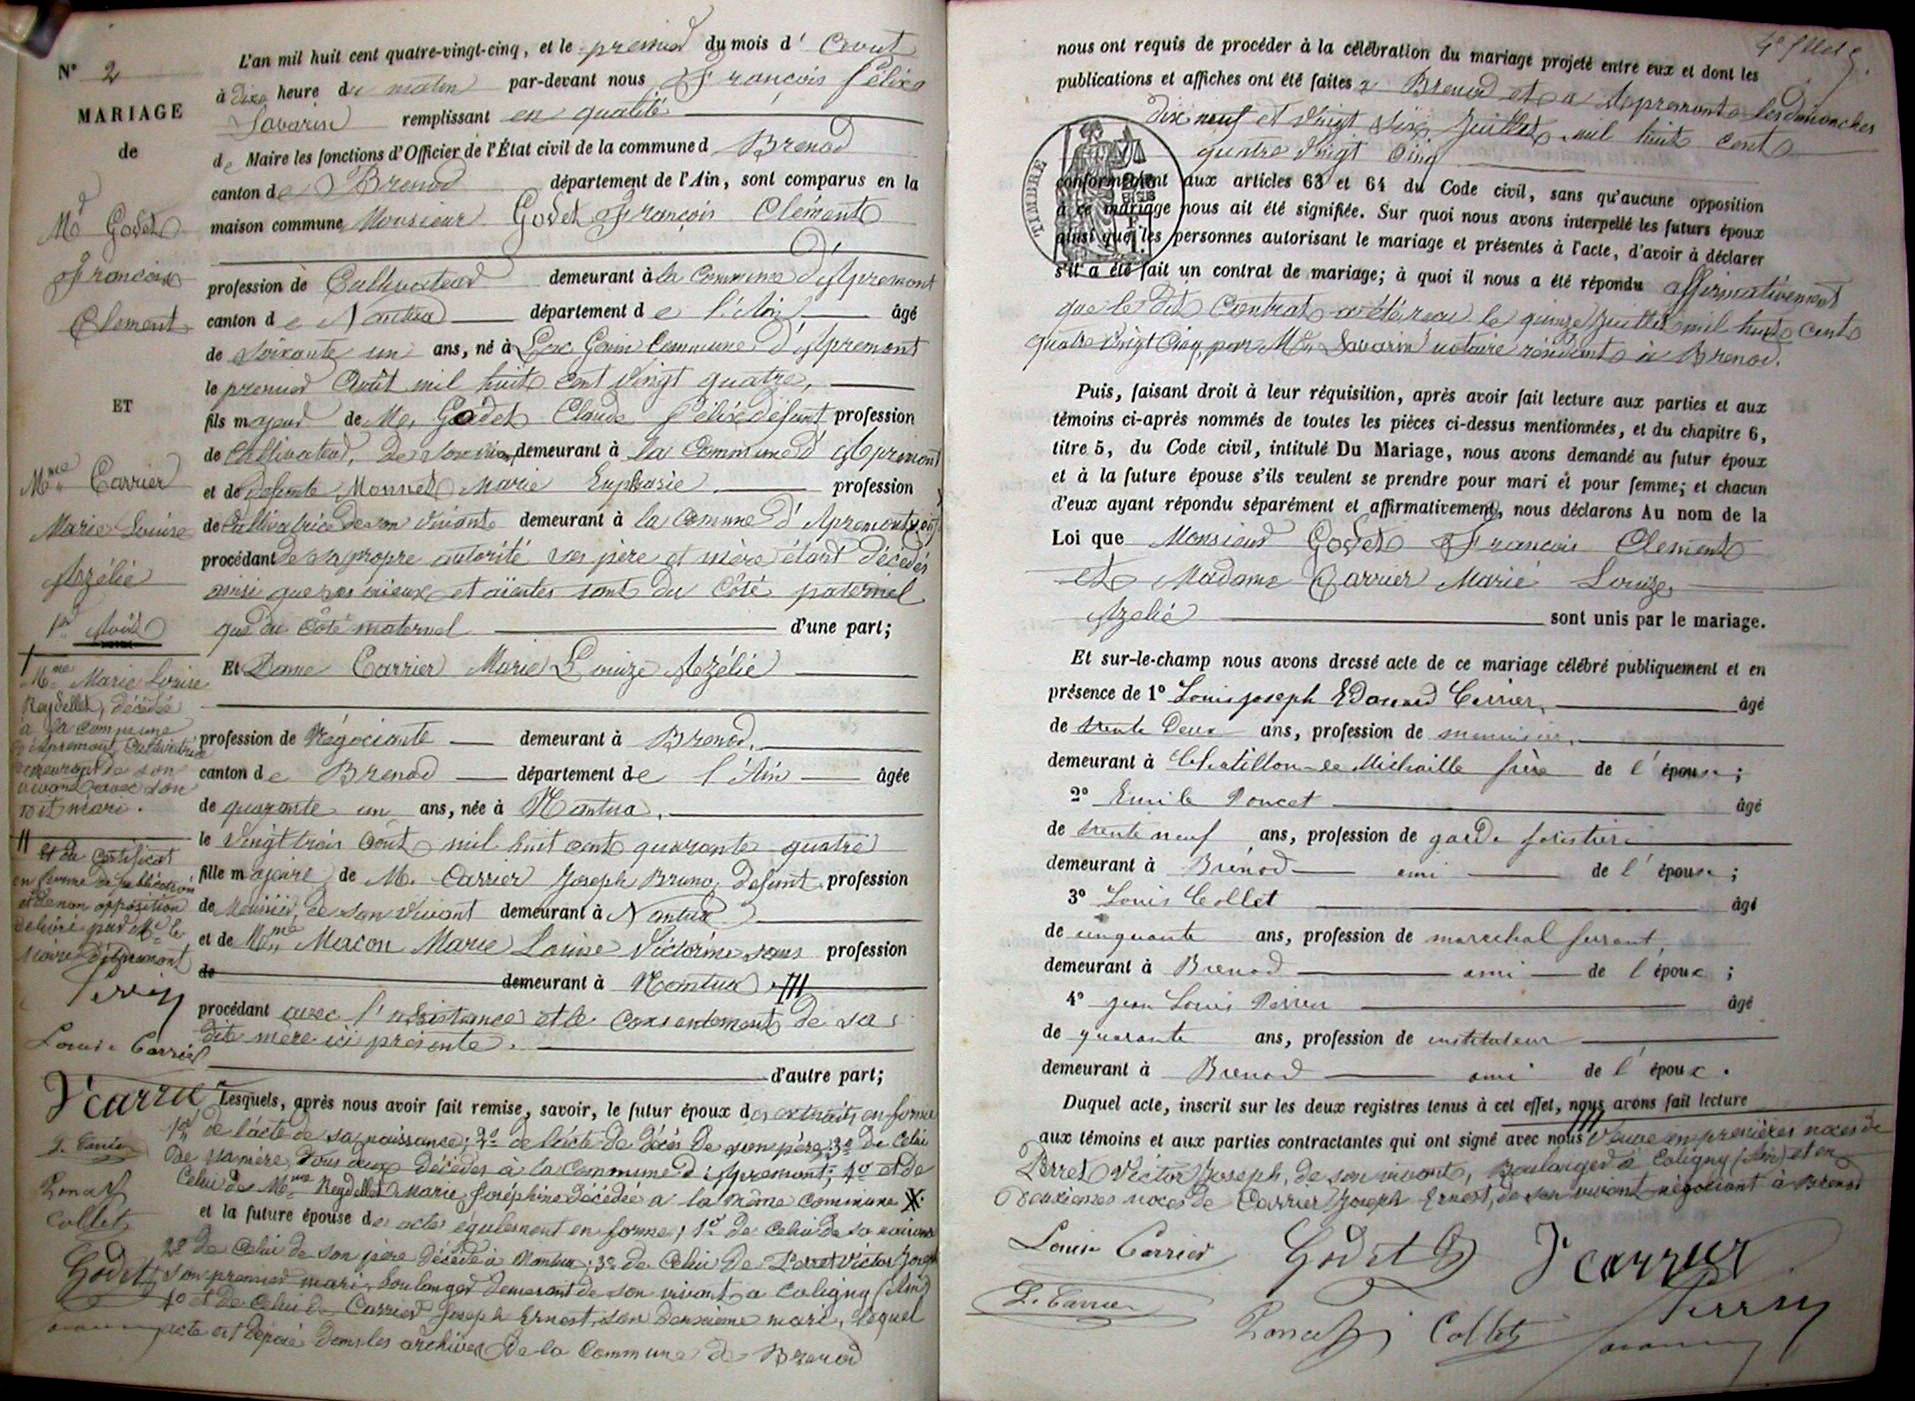 N° 2
MARIAGE
de
Mr Godet
François
Clement
ET
Mme Carrier
Marie Louise
Azélie
1er Août
Mme Marie Louise
Reydellet, décédée
à la commune
d'Apremont, cultivatrice
demeurant de son
vivant avec son
dit mari.
et du certificat
en forme de publication
et de non opposition
délivré par Mr le
Maire d'Apremont
Perrin
Louise Carrier
J carrier
L. Carrier
Poncet
Collet
Godet
L'an mil huit cent quatre-vingt-cinq, et le premier du mois d' Aout
à dix heure du matin par-devant nous François Félix
Savarin remplissant en qualité
de Maire les fonctions d'Officier de l'État civil de la commune d Brenod
canton de Brenod département de l'Ain, sont comparus en la
maison commune Monsieur Godet François Clément
profession de Cultivateur demeurant à la commune d'Apremont
canton de Nantua département de l'Ain âgé
de soixante un ans, né à Commune d'Apremont
le premier Août mil huit cent vingt quatre,
fils majeur de M. Godet Claude Félix défunt profession
de Cultivateur, de son vivant demeurant à la Commune d'Apremont
et de défunte Monnet Marie Euphrasie profession
de Cultivatrice de son vivant demeurant à la commune d'Apremont
procédant de sa propre autorité ses père et mère étant décédés
ainsi que ses aïeux et aïeules tant du côté paternel
que du côté maternel d'une part;
Et Dame Carrier Marie Louize Azélie
profession de Négociante demeurant à Brenod,
canton de Brenod département de l'Ain âgée
de quarante un ans, née à Nantua,
le vingt trois août mil huit cent quarante quatre
fille majeure de M. Carrier Joseph Bruno, défunt profession
de son vivant demeurant à Nantua
et de Mme Macon Marie Louise Victorine sans profession
de demeurant à Nantua
procédant avec l'assistance et le consentement de sa
dite mère ici présente.
d'autre part;
Lesquels, après nous avoir fait remise, savoir, le futur époux des extraits, en forme
1er de l'acte de sa naissance; 2° de l'acte de décès de son père; 3° de celui
de sa mère, tous deux décédés à la commune d'Apremont; 4° et de
celui de Mme Reydellet Marie Joséphine décédée à la même commune X
et la future épouse des actes également en forme; 1° de celui de sa naissance
2° de celui de son père décédé à Nantua; 3° de celui de Perret Victor Joseph
son premier mari, boulanger demeurant de son vivant à Coligny (Ain)
4° et de celui de Carrier Joseph Ernest, son deuxième mari, lequel
acte est déposé dans les archives de la Commune de Brenod
nous ont requis de procéder à la célébration du mariage projeté entre eux et dont les
publications et affiches ont été faites à Brenod et à Apremont les dimanches
dix neuf et vingt six Juillet mil huit cent
quatre vingt cinq
TIMBRE
conformément aux articles 63 et 64 du Code civil, sans qu'aucune opposition
à ce mariage nous ait été signifiée. Sur quoi nous avons interpellé les futurs époux
ainsi que les personnes autorisant le mariage et présentes à l'acte, d'avoir à déclarer
s'il a été fait un contrat de mariage; à quoi il nous a été répondu affirmativement
que le dit Contrat a été reçu le quinze Juillet mil huit cent
quatre vingt cinq, par Me Savarin notaire résident à Brenod.
Puis, faisant droit à leur réquisition, après avoir fait lecture aux parties et aux
témoins ci-après nommés de toutes les pièces ci-dessus mentionnées, et du chapitre 6,
titre 5, du Code civil, intitulé Du Mariage, nous avons demandé au futur époux
et à la future épouse s'ils veulent se prendre pour mari et pour femme; et chacun
d'eux ayant répondu séparément et affirmativement, nous déclarons Au nom de la
Loi que Monsieur Godet François Clement
et Madame Carrier Marie Louize,
Azelie sont unis par le mariage.
Et sur-le-champ nous avons dressé acte de ce mariage célébré publiquement et en
présence de 1° Louis joseph Edouard Carrier, âgé
de trente deux ans, profession de
demeurant à Chatillon de Michaille frère de l'épouse;
2° Emile Poncet âgé
de trente neuf ans, profession de garde forestier
demeurant à Brénod ami de l'épouse;
3° Louis Collet âgé
de cinquante ans, profession de marechal ferrant
demeurant à Brenod ami de l'époux;
4° jean Louis Perrin âgé
de quarante ans, profession de instituteur
demeurant à Brenod ami de l'époux.
Duquel acte, inscrit sur les deux registres tenus à cet effet, nous avons fait lecture
aux témoins et aux parties contractantes qui ont signé avec nous Veuve en premières noces de
Perret Victor Joseph, de son vivant, Boulanger à Coligny (Ain) et en
deuxièmes noces de Carrier Joseph Ernest, de son vivant négociant à Brenod
Louise Carrier Godet J carrier
L. Carrier Poncet Collet Perrin